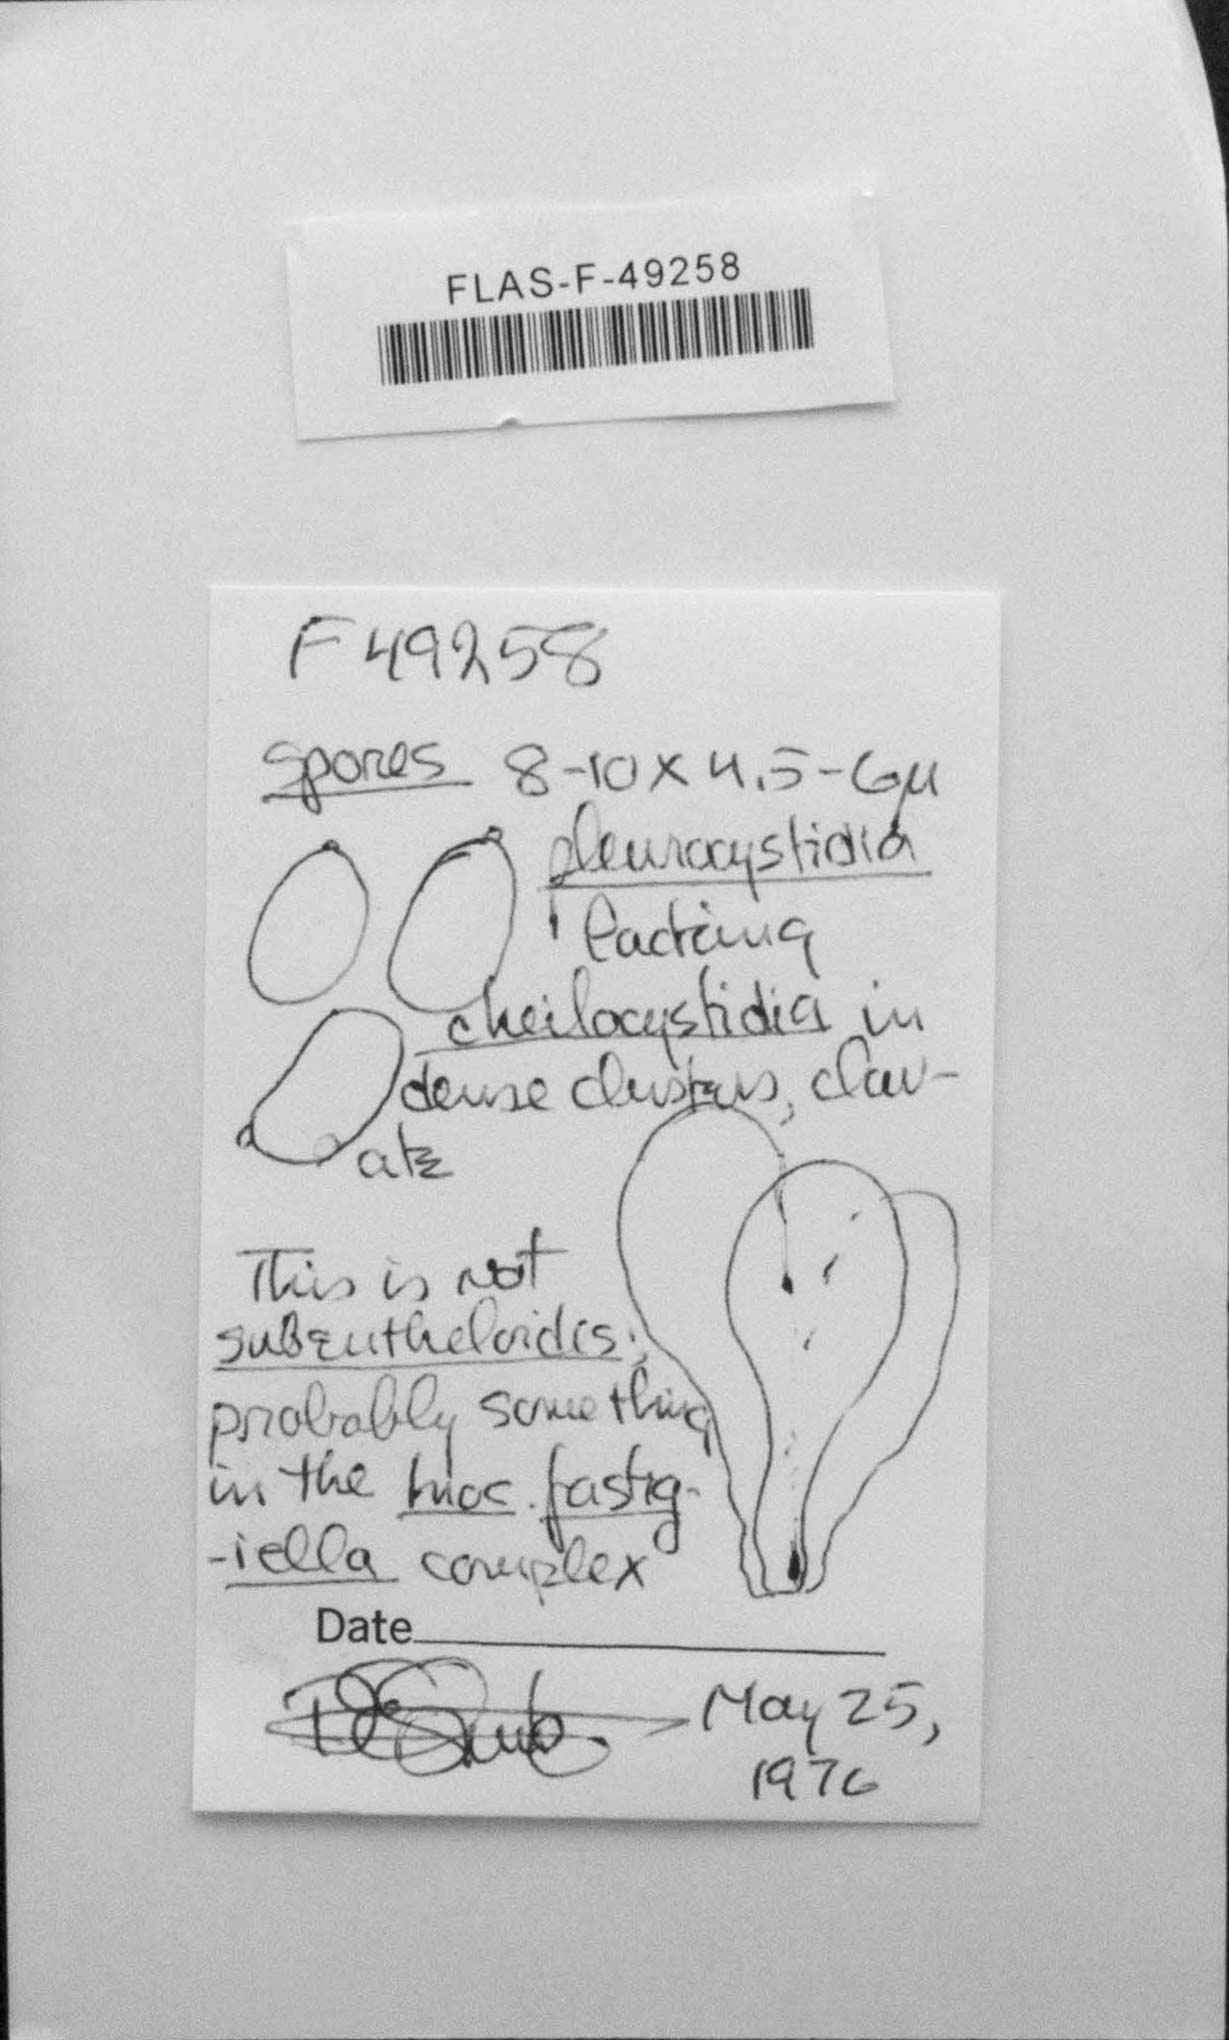 FLAS-F-49258
F49258
spores 8-10 x 4.5-6µ
pleurocystidia
lacking
cheilocystidia in
dense clusters, clav-
ate
This is not
subeutheloides;
probably something
in the Inoc. fastig-
-iella complex
Date
May 25,
1976